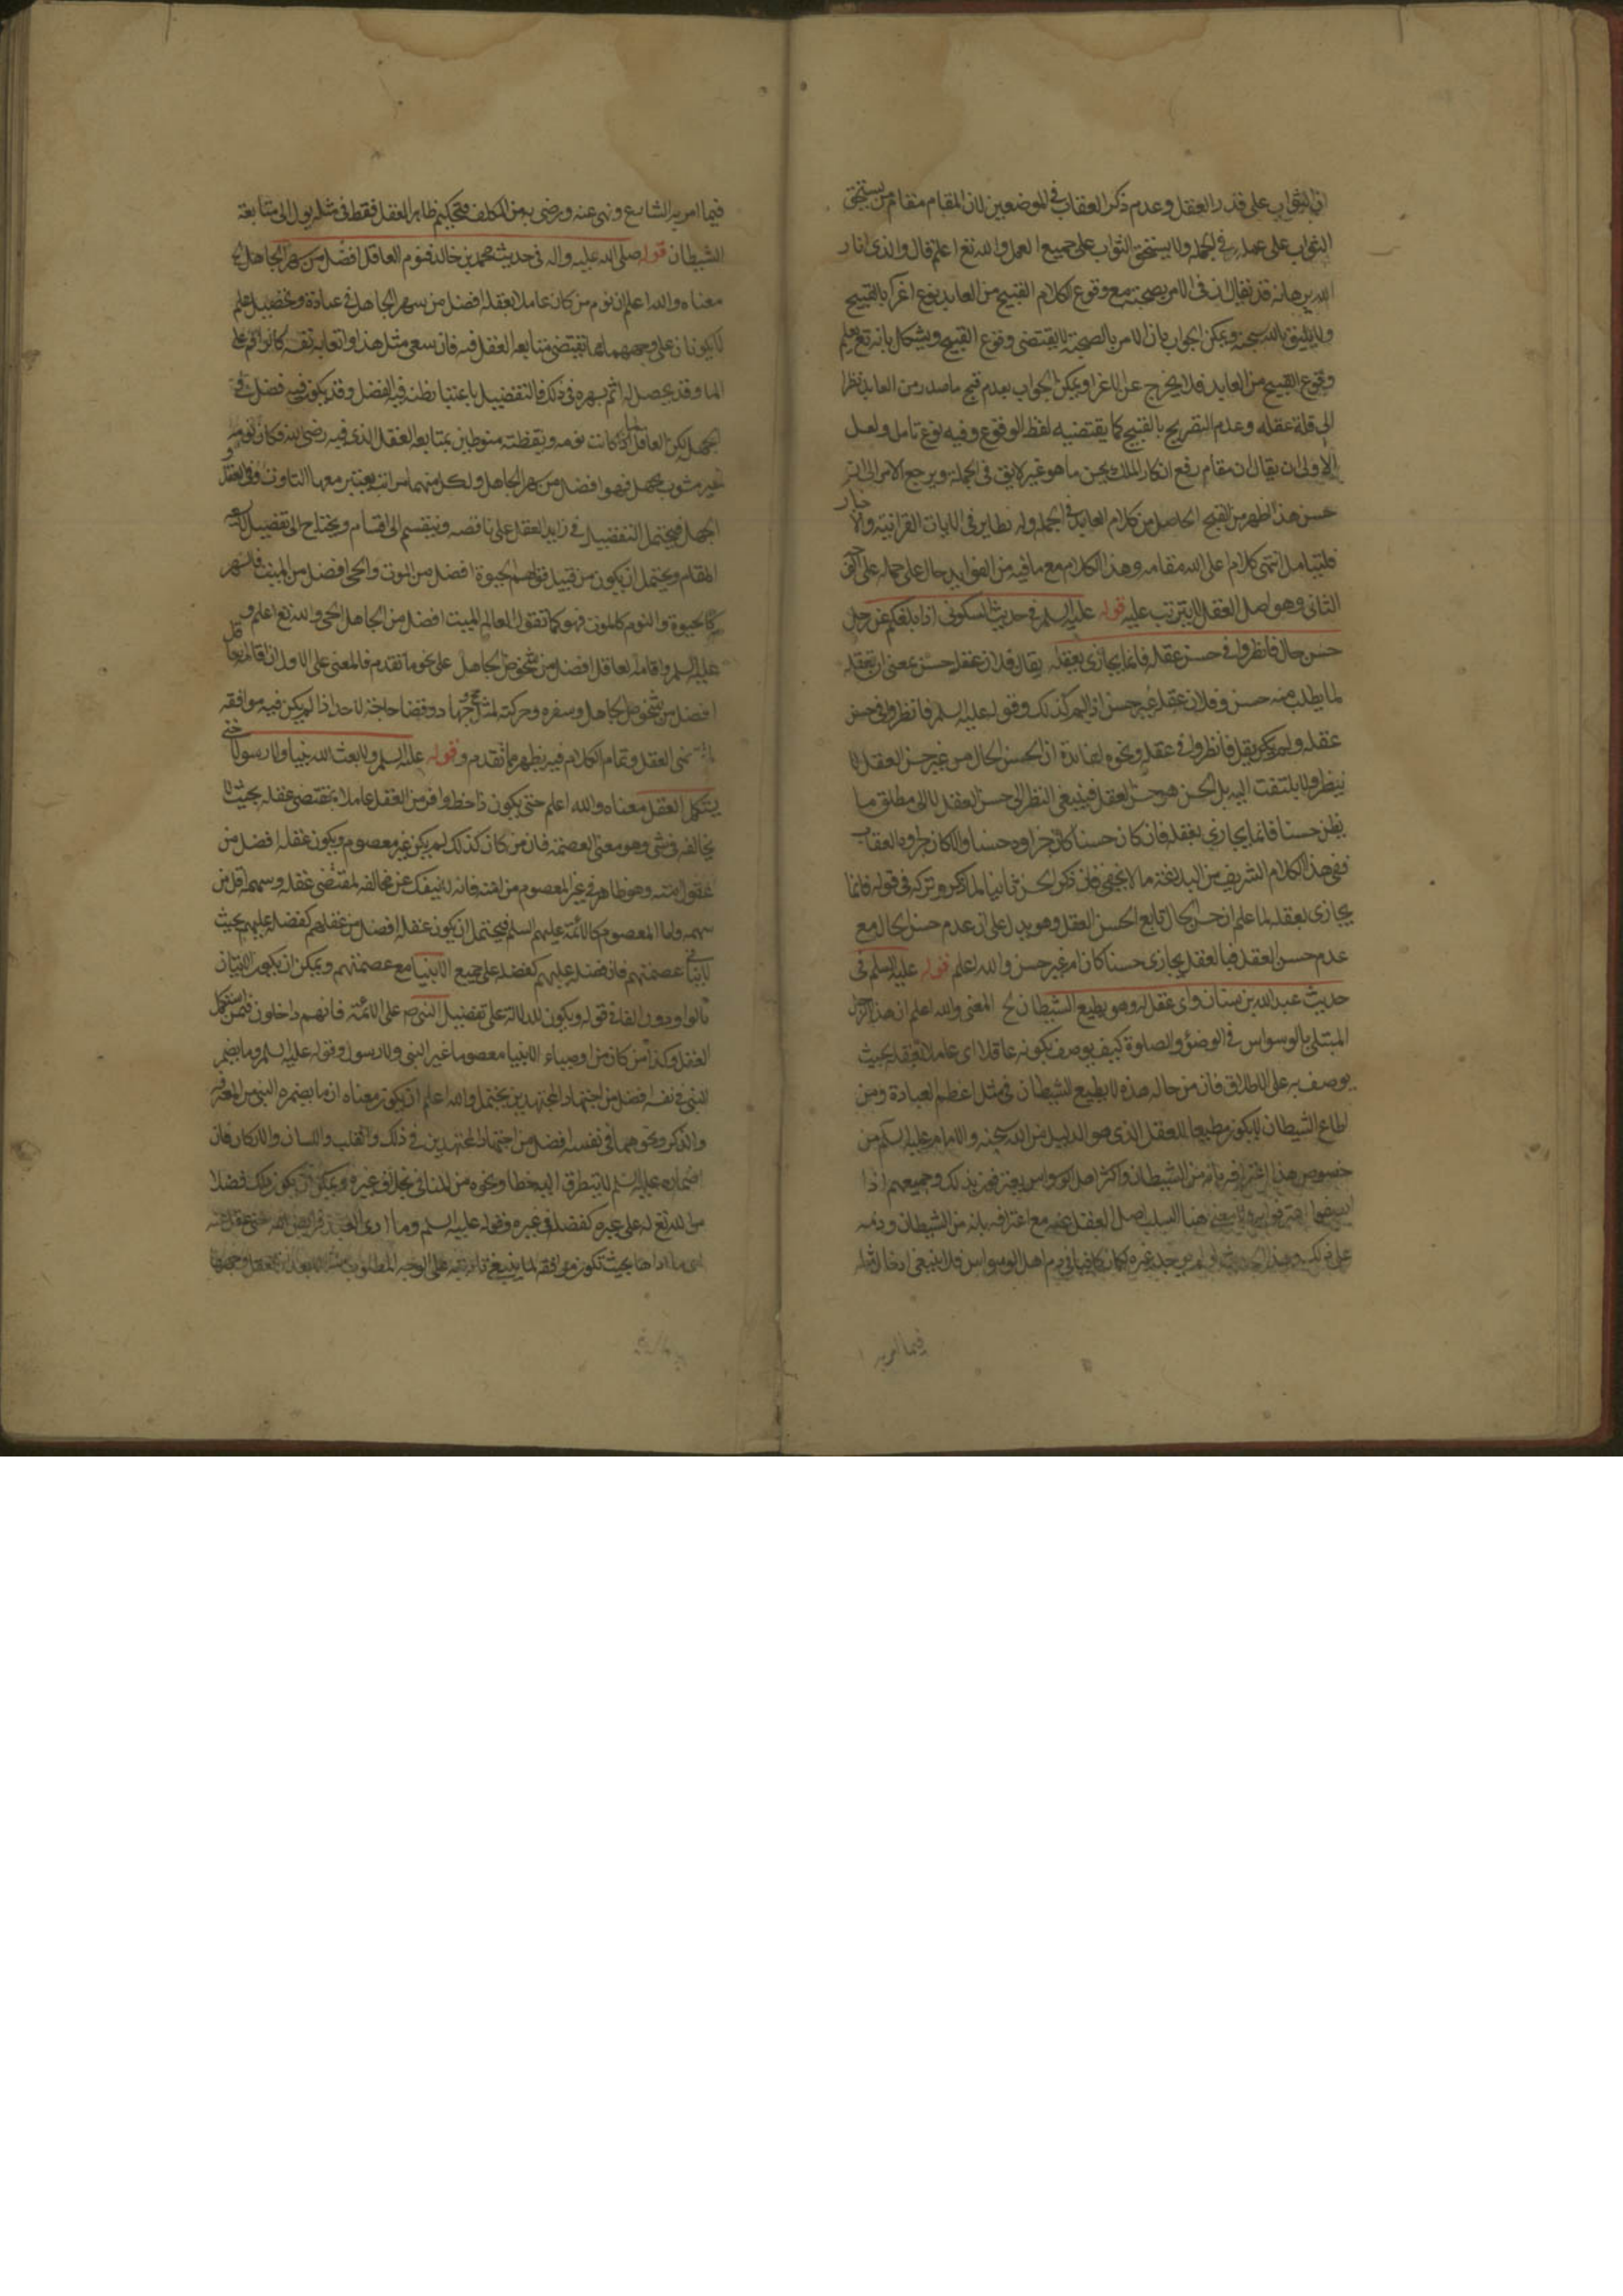 ان الثواب على قدر العقل وعدم ذكر العقاب في الموضعين لان المقام مقام من يستحق
الثواب على عمله في الجملة ولا يستحق الثواب على جميع العمل والله تع اعلم قال والذي انار
الله برهانه قد يقال ان في الامر بصحبته مع وقوع الكلام القبيح من العابد نوع اغراء بالقبيح
ولا يليق بالله سبحنه ويمكن الجواب بان الامر بالصحبة لا يقتضي وقوع القبيح ويشكل بانه تع يعلم
وقوع القبيح من العابد فلا يخرج عن الاغراء ويمكن الجواب بعدم قبح ما صدر من العابد نظرا
الى قلة عقله وعدم التقريح بالقبيح كما يقتضيه لفظ الوقوع وفيه نوع تامل ولعل
الاولى ان يقال ان مقام رفع انكار الملك يحسن ما هو غير لايق في الجملة ويرجع الامر الى ان
حسن هذا اظهر من القبح الحاصل من كلام العابد في الجملة وله نظاير في الايات القرانية والاخبار
فليتامل انتهى كلام اعلى الله مقامه وهذا الكلام مع ما فيه من الفوايد حال على حمله على
الثاني وهو اصل العقل لا يترتب عليه قوله عليه السلم في حديث السكوني اذا بلغكم عن رجل
حسن حال فانظروا في حسن عقله فانما يجازى بعقله يقال فلان عقله حسن بمعنى ان تعقله
لما يطلب منه حسن وفلان عقله غير حسن اذا لم يكن كذلك وقوله عليه السلم فانظروا في حسن
عقله ولم يكن يقل فانظروا في عقله ونحوه لفائدة ان الحسن الحال من غير حسن العقل لا
ينظر ولا يلتفت اليه بل الحسن هو حسن العقل فينبغي النظر الى حسن العقل لا الى مطلق ما
يظن حسنا فانما يجازى بعقله فان كان حسنا كان جزاوه حسنا والا كان جزاوه العقاب
ففي هذا الكلام الشريف من البلاغة ما لا يخفى فان ذكر الحسن ثانيا لما ذكر وتركه في قوله فانما
يجازى بعقله لما علم ان حسن الحال تابع لحسن العقل وهو يدل على ان عدم حسن الحال مع
عدم حسن العقل فبالعقل يجازى حسنا كان ام غير حسن والله اعلم قوله عليه السلم في
حديث عبد الله بن سنان واي عقل له وهو يطيع الشيطان الخ المعنى والله اعلم ان هذا الرجل
المبتلى بالوسواس في الوضؤ والصلوة كيف يوصف بكونه عاقلا اي عاملا بعقله بحيث
يوصف به على الاطلاق فان من حاله هذه لا يطيع الشيطان في مثل اعظم العبادة ومن
اطاع الشيطان لا يكون مطيعا للعقل الذي هو الدليل من الله سبحنه والامام عليه السلم من
خصوص هذا اعترافه بانه من الشيطان واكثر اهل الوسواس يعترفون بذلك وجميعهم اذا
هنا السلب اصل العقل عنه مع اعترافه بانه من الشيطان وذمه
على ذلك كان كافيا في ذم اهل الوسواس فلا ينبغي ادخال
فيما امر به
فيما امر به الشارع ونهى عنه ورضى به من المكلف وتحكيم ظاهر العقل فقط في مثله يول الى متابعة
الشيطان قوله صلى الله عليه واله في حديث محمد بن خالد فنوم العاقل افضل من سهر الجاهل الخ
معناه والله اعلم ان نوم من كان عاملا بعقله افضل من سهر الجاهل في عبادة وتحصيل علم
لا يكونان على وجههما بما يقتضي متابعة العقل فيه فان سعى مثل هذا واتعابه نفسه كالراقم على
الماء وقد يحصل له اثم بسهره في ذلك فالتفضيل باعتبار ظنه فيه الفضل وقد يكون فيه فضل
بجهل لكن العاقل لما كانت نومه ويقظته منوطين بمتابعة العقل الذي فيه رضى الله فكان نومه
غير مشوب بجهل فهو افضل من سهر الجاهل ولكل منهما مراتب يعتبر معها التفاوت في العقل و
الجهل فيحتمل التفضيل في زايد العقل على ناقصه وينقسم الى اقسام ويحتاج الى تفضيل
المقام ويحتمل ان يكون من قبيل قولهم الحيوة افضل من الموت والحي افضل من الميت فالسهر
كالحيوة والنوم كالموت فهو كما تقول العالم الميت افضل من الجاهل الحي والله تع اعلم و
عليه السلم واقامة العاقل افضل من شخوص الجاهل على نحو ما تقدم فالمعنى على الاول ان اقامة العاقل
افضل من شخوص الجاهل وسفره وحركته لمثل حج وجهاد وقضا حاجة لاحد اذا لم يكن فيه موافقة
لمقتضى العقل وتمام الكلام فيه يظهر مما تقدم وقوله عليه السلم ولا بعث الله نبيا ولا رسولا حتى
يستكمل العقل معناه والله اعلم حتى يكون ذا حظ وافر من العقل عاملا بمقتضى عقله بحيث لا
يخالفه في شي وهو معنى العصمة فان من كان كذلك لم يكن غير معصوم ويكون عقله افضل من
عقول امته وهو ظاهر في غير المعصوم من امته فانه لا ينفك عن مخالفة لمقتضى عقله وسهمه اقل من
سهمه واما المعصوم كالائمة عليهم السلم فيحتمل ان يكون عقله افضل من عقلهم كفضله عليهم بحيث
لا ينافي عصمتهم فان فضله عليهم كفضله على جميع الانبيا مع عصمتهم ويمكن ان يكون الاتيان
بالواو دون الفاء في قوله ويكون للدلالة على تفضيل النبي ص على الائمة فانهم داخلون فيمن استكمل
العقل وكذا من كان من اوصياء الانبيا معصوما غير النبي ولا رسول وقوله عليه السلم وما يضمر
النبي في نفسه افضل من اجتهاد المجتهدين يحتمل والله اعلم ان يكون معناه ان ما يضمره النبي من المعرفة
والذكر ونحوهما في نفسه افضل من اجتهاد المجتهدين في ذلك والقلب واللسان والاركان فان
اضماره عليه السلم لا يتطرق اليه خطا ونحوه من المنافي بخلاف غيره ويمكن ان يكون ذلك فضلا
من الله تع له على غيره كفضله في غيره وقوله عليه السلم وما ادى العبد فرايض الله حتى عقل عنه
اي ما اداها بحيث تكون موافقة لما ينبغي تاديته على الوجه المطلوب